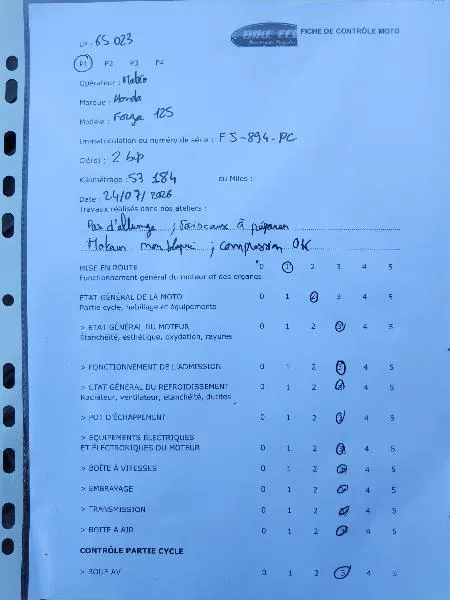 LP : 65 023
BIKE ECO
FICHE DE CONTRÔLE MOTO
P1 P2 P3 P4
Opérateur : Matéo
Marque : Honda
Modèle : Forza 125
Immatriculation ou numéro de série : FJ-894-PC
Clé(s) : 2 bip
Kilométrage : 53 184 ou Miles :
Date : 24/07/2026
Travaux réalisés dans nos ateliers :
Pas d'allumage ; Faisceaux à réparer
Moteur non bloqué ; Compression OK
MISE EN ROUTE 0 1 2 3 4 5
Fonctionnement général du moteur et des organes
ETAT GÉNÉRAL DE LA MOTO 0 1 2 3 4 5
Partie cycle, habillage et équipements
> ETAT GÉNÉRAL DU MOTEUR 0 1 2 3 4 5
Étanchéité, esthétique, oxydation, rayures
> FONCTIONNEMENT DE L'ADMISSION 0 1 2 3 4 5
> ETAT GÉNÉRAL DU REFROIDISSEMENT 0 1 2 3 4 5
Radiateur, ventilateur, étanchéité, durites
> POT D'ÉCHAPPEMENT 0 1 2 3 4 5
> EQUIPEMENTS ÉLECTRIQUES
ET ÉLECTRONIQUES DU MOTEUR 0 1 2 3 4 5
> BOÎTE À VITESSES 0 1 2 3 4 5
> EMBRAYAGE 0 1 2 3 4 5
> TRANSMISSION 0 1 2 3 4 5
> BOITE A AIR 0 1 2 3 4 5
CONTRÔLE PARTIE CYCLE
> ROUE AV 0 1 2 3 4 5